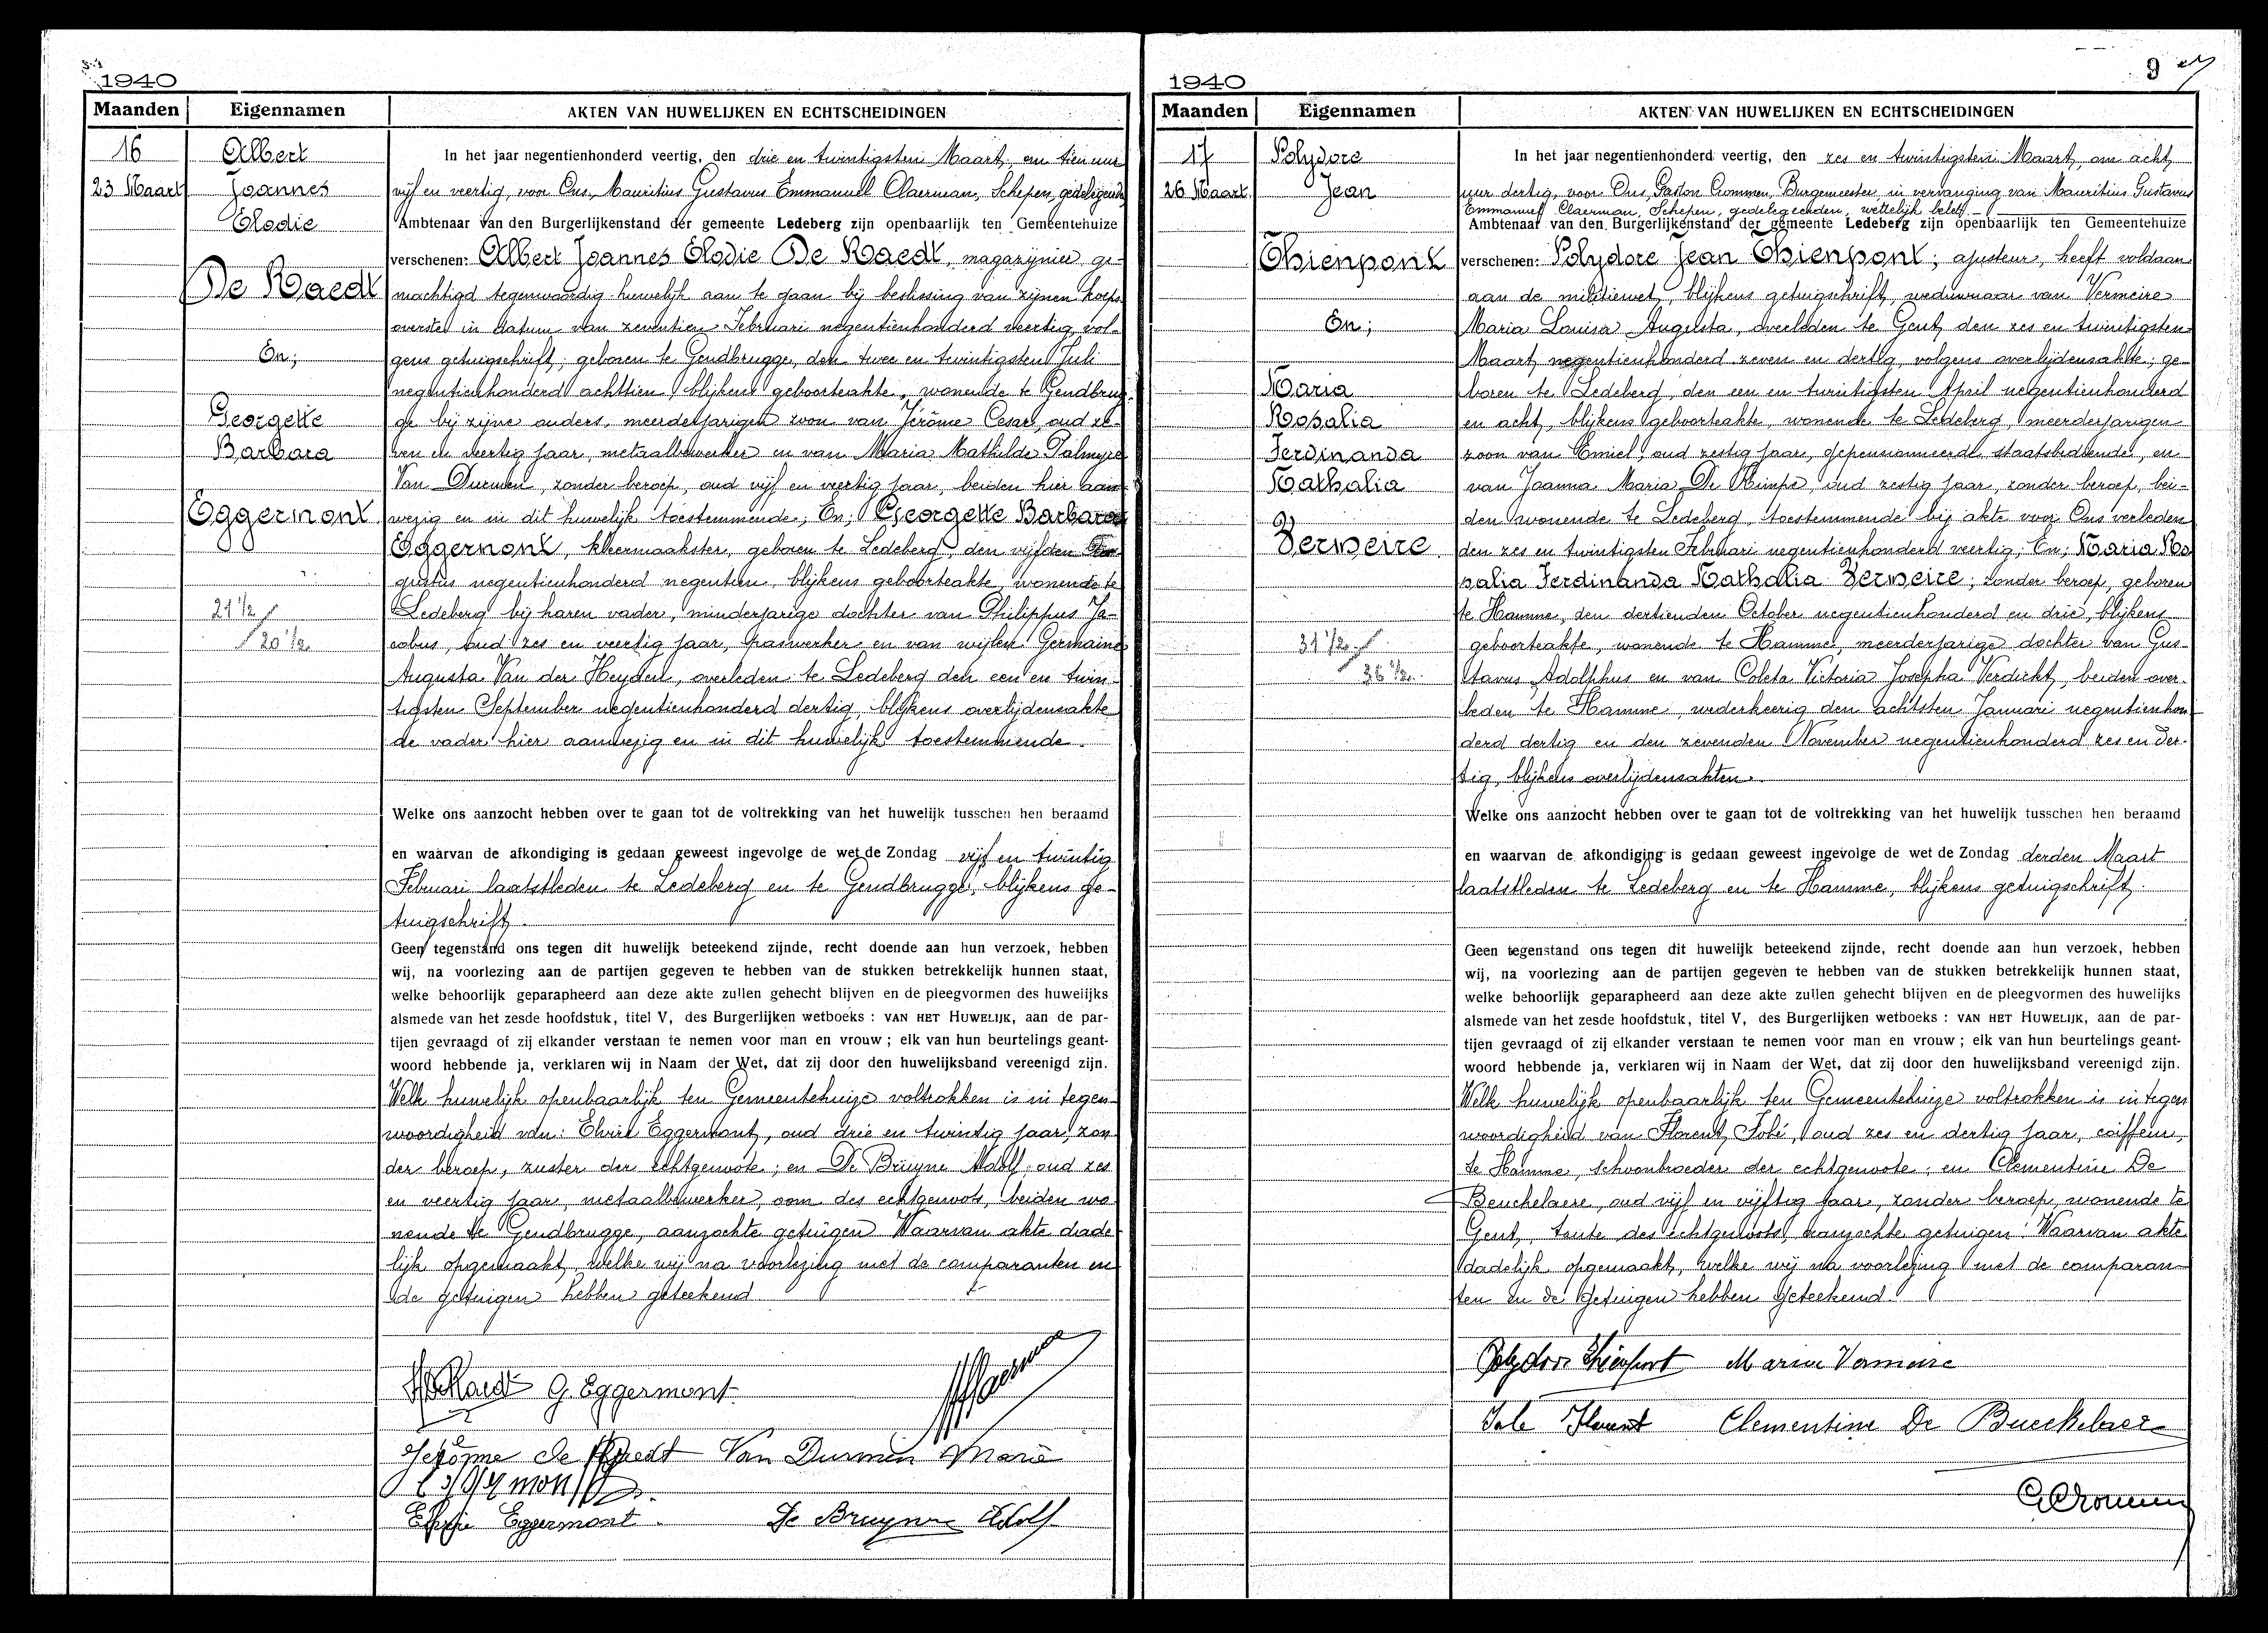 1940
Maanden Eigennamen AKTEN VAN HUWELIJKEN EN ECHTSCHEIDINGEN
16
23 Maart
Albert
Joannes
Elodie
De Raedt
En;
Georgette
Barbara
Eggermont
21 1/2
20 1/2
In het jaar negentienhonderd veertig, den drie en twintigsten Maart, om tien uur
vijf en veertig, voor Ons, Mauritius Gustavus Emmanuel Claerman, Schepen, gedelegeerde
Ambtenaar van den Burgerlijkenstand der gemeente Ledeberg zijn openbaarlijk ten Gemeentehuize
verschenen: Albert Joannes Elodie De Raedt, magazijnier, ge-
machtigd tegenwoordig huwelijk aan te gaan bij beslissing van zijnen korps
overste in datum van zeventien Februari negentienhonderd veertig, vol-
gens getuigschrift; geboren te Gendbrugge, den twee en twintigsten Juli
negentienhonderd achttien, blijkens geboorteakte, wonende te Gendbrug-
ge bij zijne ouders, meerderjarigen zoon van Jérôme Cesar, oud ze-
ven en veertig jaar, metaalbewerker en van Maria Mathilde Palmyre
Van Durmen, zonder beroep, oud vijf en veertig jaar, beiden hier aan-
wezig en in dit huwelijk toestemmende; En; Georgette Barbara
Eggermont, kleermaakster, geboren te Ledeberg, den vijfden Au-
gustus negentienhonderd negentien, blijkens geboorteakte, wonende te
Ledeberg bij haren vader, minderjarige dochter van Philippus Ja-
cobus, oud zes en veertig jaar, gaswerker en van wijlen Germaine
Augusta Van der Heyden, overleden te Ledeberg den een en twin-
tigsten September negentienhonderd dertig, blijkens overlijdensakte
de vader hier aanwezig en in dit huwelijk toestemmende.
Welke ons aanzocht hebben over te gaan tot de voltrekking van het huwelijk tusschen hen beraamd
en waarvan de afkondiging is gedaan geweest ingevolge de wet de Zondag vijf en twintig
Februari laatstleden te Ledeberg en te Gendbrugge, blijkens ge-
tuigschrift.
Geen tegenstand ons tegen dit huwelijk beteekend zijnde, recht doende aan hun verzoek, hebben
wij, na voorlezing aan de partijen gegeven te hebben van de stukken betrekkelijk hunnen staat,
welke behoorlijk geparapheerd aan deze akte zullen gehecht blijven en de pleegvormen des huwelijks
alsmede van het zesde hoofdstuk, titel V, des Burgerlijken wetboeks : VAN HET HUWELIJK, aan de par-
tijen gevraagd of zij elkander verstaan te nemen voor man en vrouw ; elk van hun beurtelings geant-
woord hebbende ja, verklaren wij in Naam der Wet, dat zij door den huwelijksband vereenigd zijn.
Welk huwelijk openbaarlijk ten Gemeentehuize voltrokken is in tegen-
woordigheid van: Elvire Eggermont, oud drie en twintig jaar, zon-
der beroep, zuster der echtgenoote; en De Bruyne Adolf, oud zes
en veertig jaar, metaalbewerker, oom des echtgenoots, beiden wo-
nende te Gendbrugge, aanzochte getuigen. Waarvan akte dade-
lijk opgemaakt, welke wij na voorlezing met de comparanten en
de getuigen hebben geteekend.
G Eggermont
Jérôme de Raedt Van Durmen Marie
Eggermont
De Bruyne Adolf
1940
9
Maanden Eigennamen AKTEN VAN HUWELIJKEN EN ECHTSCHEIDINGEN
17
26 Maart
Polydore
Jean
Thienpont
En;
Maria
Rosalia
Ferdinanda
Nathalia
Vermeire
31 1/2
36 1/2
In het jaar negentienhonderd veertig, den zes en twintigsten Maart, om acht
uur dertig, voor Ons, Gaston Crommen, Burgemeester, in vervanging van Mauritius Gustavus
Emmanuel Claerman, Schepen, gedelegeerden, wettelijk belet
Ambtenaar van den Burgerlijkenstand der gemeente Ledeberg zijn openbaarlijk ten Gemeentehuize
verschenen: Polydore Jean Thienpont; ajusteur, heeft voldaan
aan de militiewet, blijkens getuigschrift, weduwnaar van Vermeire
Maria Louisa Augusta, overleden te Gent, den zes en twintigsten
Maart negentienhonderd zeven en dertig, volgens overlijdensakte; ge-
boren te Ledeberg, den een en twintigsten April negentienhonderd
en acht, blijkens geboorteakte, wonende te Ledeberg, meerderjarigen
zoon van Emiel, oud zestig jaar, gepensionneerde staatsbediende, en
van Joanna Maria De Rümpe, oud zestig jaar, zonder beroep, bei-
den wonende te Ledeberg, toestemmende bij akte voor Ons verleden
den zes en twintigsten Februari negentienhonderd veertig; En; Maria Ro-
salia Ferdinanda Nathalia Vermeire; zonder beroep, geboren
te Hamme, den dertienden October negentienhonderd en drie, blijkens
geboorteakte, wonende te Hamme, meerderjarige dochter van Gus-
tavus Adolphus en van Coleta Victoria Josepha Verdickt, beiden over-
leden te Hamme, wederkeerig den achtsten Januari negentienhon-
derd dertig en den zevenden November negentienhonderd zes en der-
tig, blijkens overlijdensakten.
Welke ons aanzocht hebben over te gaan tot de voltrekking van het huwelijk tusschen hen beraamd
en waarvan de afkondiging is gedaan geweest ingevolge de wet de Zondag derden Maart
laatstleden te Ledeberg en te Hamme, blijkens getuigschrift.
Geen tegenstand ons tegen dit huwelijk beteekend zijnde, recht doende aan hun verzoek, hebben
wij, na voorlezing aan de partijen gegeven te hebben van de stukken betrekkelijk hunnen staat,
welke behoorlijk geparapheerd aan deze akte zullen gehecht blijven en de pleegvormen des huwelijks
alsmede van het zesde hoofdstuk, titel V, des Burgerlijken wetboeks : VAN HET HUWELIJK, aan de par-
tijen gevraagd of zij elkander verstaan te nemen voor man en vrouw ; elk van hun beurtelings geant-
woord hebbende ja, verklaren wij in Naam der Wet, dat zij door den huwelijksband vereenigd zijn.
Welk huwelijk openbaarlijk ten Gemeentehuize voltrokken is in tegen
woordigheid van Florent Jolé, oud zes en dertig jaar, coiffeur,
te Hamme, schoonbroeder der echtgenoote; en Clementine De
Beuckelaere, oud vijf en vijftig jaar, zonder beroep, wonende te
Gent, tante des echtgenoots, aanzochte getuigen. Waarvan akte
dadelijk opgemaakt, welke wij na voorlezing met de comparan-
ten en de getuigen hebben geteekend.
Polydoor Thienpont Maria Vermeire
Florent Clementine De Bueckelaer
G Crommen